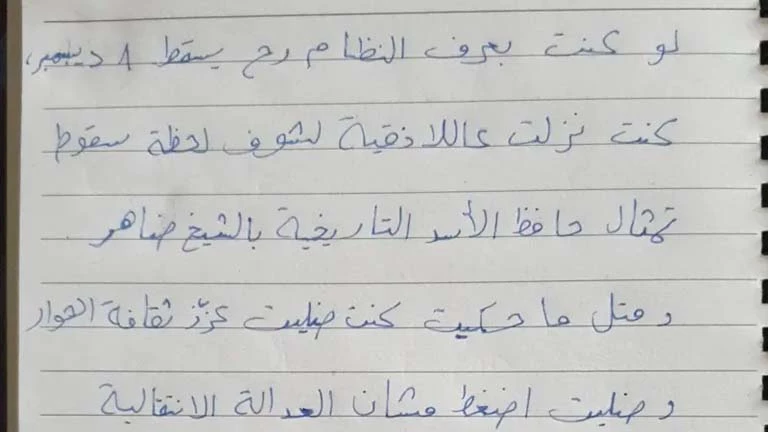 لو كنت بعرف النظام رح يسقط ٨ ديسمبر،
كنت نزلت عاللاذقية لشوف لحظة سقوط
تمثال حافظ الأسد التاريخية بالشيخ ضاهر
ومتل ما حكيت كنت ضليت عزّز ثقافة الحوار
وضليت اضغط مشان العدالة الانتقالية